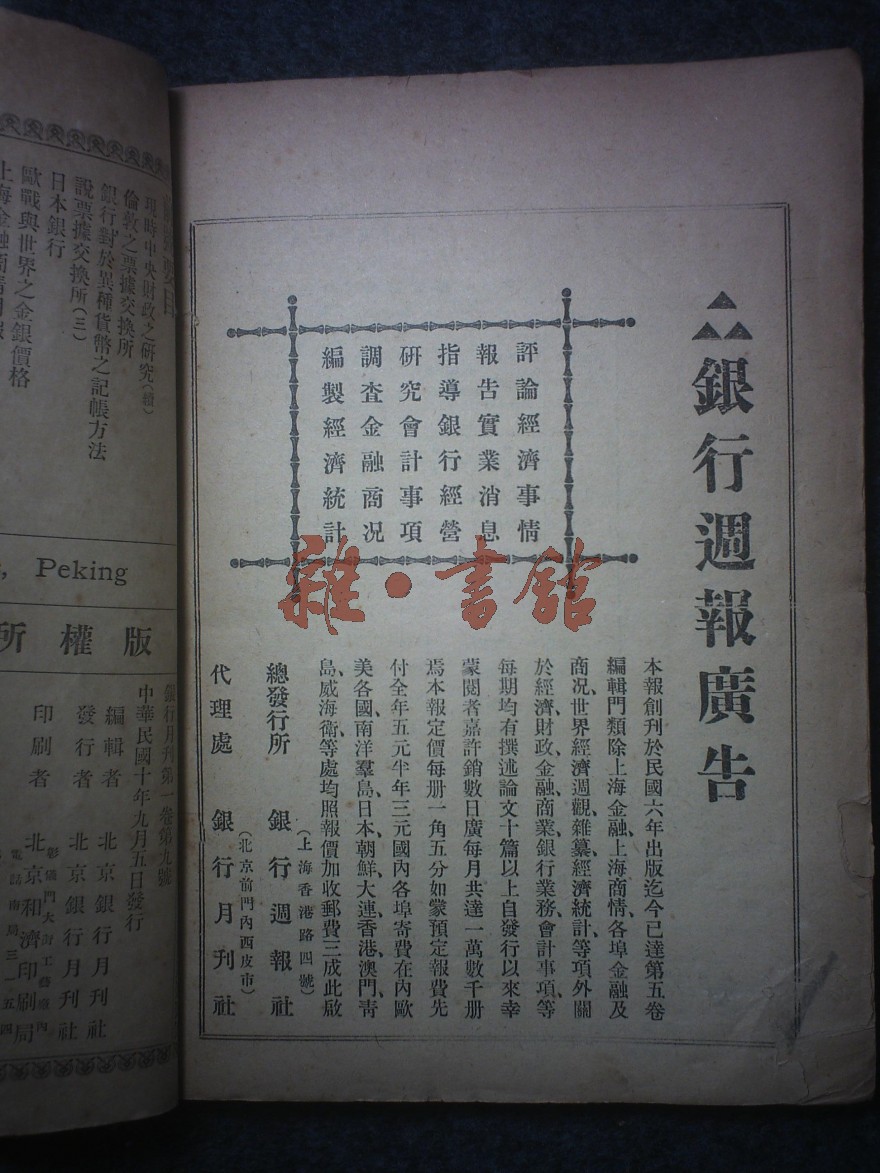 銀行週報廣告
評論經濟事情
報告實業消息
指導銀行經營
研究會計事項
調査金融商况
編製經濟統計
本報創刊於民國六年出版迄今已達第五卷
編輯門類除上海金融、上海商情、各埠金融及
商况、世界經濟週觀、雜纂、經濟統計、等項外關
於經濟、財政、金融、商業、銀行業務、會計事項、等
每期均有撰述論文十篇以上自發行以來幸
蒙閱者嘉許銷數日廣每月共達一萬數千册
焉本報定價每册一角五分如蒙預定報費先
付全年五元半年三元國內各埠寄費在內歐
美各國、南洋羣島、日本、朝鮮、大連、香港、澳門、靑
島、威海衛、等處均照報價加收郵費三成此啟
總發行所 銀行週報社
(上海香港路四號)
代理處 銀行月刊社
(北京前門內西皮市)
雜·書館
現時中央財政之研究(續)
倫敦之票據交換所
銀行對於異種貨幣之記帳方法
說票據交換所(三)
日本銀行
歐戰與世界之金銀價格
上海金融商情月報
Peking
版權所
銀行月刊第一卷第九號
中華民國十年九月五日發行
編輯者 北京銀行月刊社
發行者 北京銀行月刊社
印刷者 北京和濟印刷局
電話南局三一五四